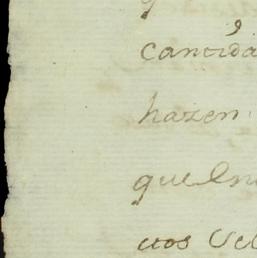 cantida
hazen
quelno
uos Vel